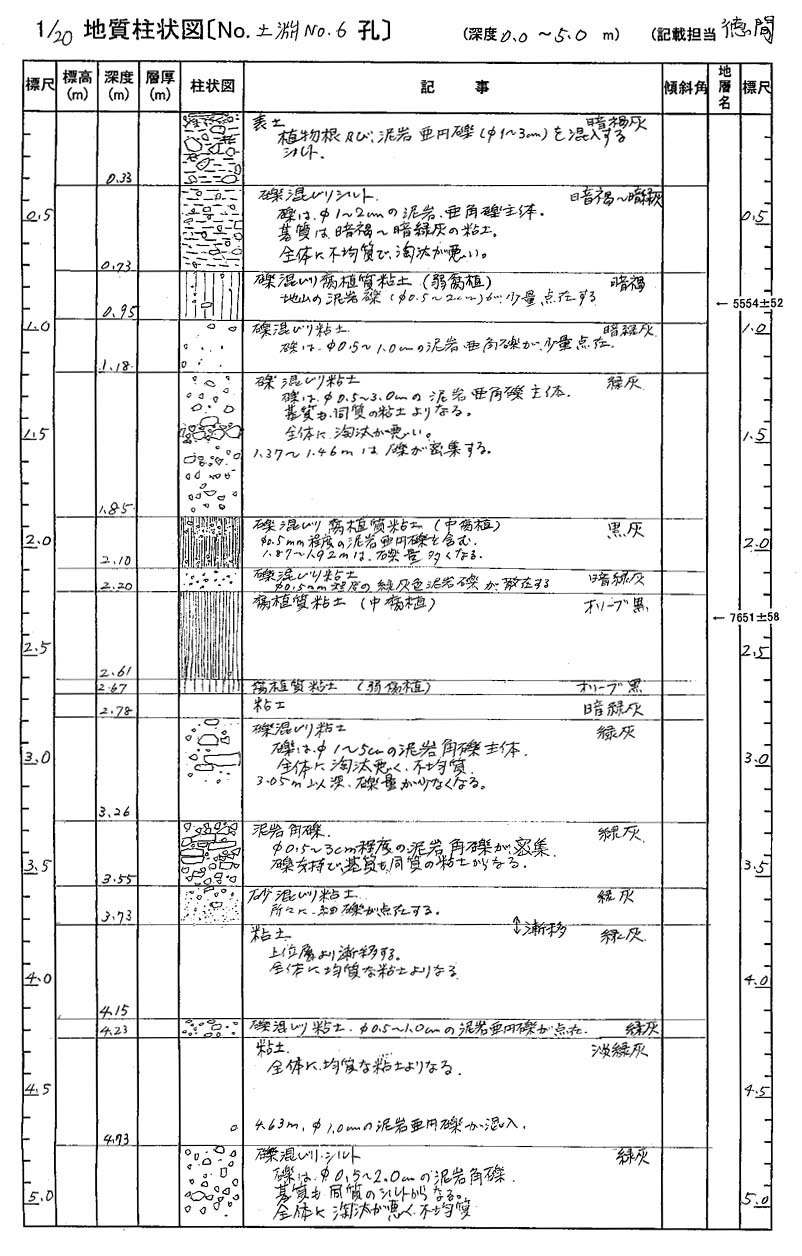 1/20 地質柱状図〔No. 土淵No.6 孔〕 (深度0.0~5.0 m) (記載担当 徳間
標尺 標高(m) 深度(m) 層厚(m) 柱状図 記 事 傾斜角 地層名 標尺
表土 暗褐灰
植物根及び、泥岩亜円礫(φ1~3cm)を混入する
シルト.
0.33
礫混じりシルト. 暗褐~暗緑灰
0.5 0.5
礫は、φ1~2cmの泥岩、亜角礫主体.
基質は暗褐~暗緑灰の粘土.
全体に不均質で、淘汰が悪い。
0.73
礫混じり腐植質粘土 (弱腐植) 暗褐
地山の泥岩礫(φ0.5~2cm)が少量点在する
0.95 ← 5554±52
1.0 1.0
礫混じり粘土 暗緑灰
礫は、φ0.5~1.0cmの泥岩亜角礫が、少量点在.
1.18
礫混じり粘土 緑灰
礫は、φ0.5~3.0cmの泥岩亜角礫主体.
基質も同質の粘土よりなる。
全体に淘汰が悪い。
1.5 1.5
1.37~1.46mは礫が密集する。
1.85
礫混じり腐植質粘土 (中腐植) 黒灰
φ0.5mm程度の泥岩亜円礫を含む.
2.0 2.0
1.87~1.92mは、礫量多くなる.
2.10
礫混じり粘土 暗緑灰
φ0.5mm程度の緑灰色泥岩礫が散在する
2.20
腐植質粘土 (中腐植) オリーブ黒
← 7651±58
2.5 2.5
2.61
腐植質粘土 (弱腐植) オリーブ黒
2.67
粘土 暗緑灰
2.78
礫混じり粘土 緑灰
礫は、φ1~5cmの泥岩角礫主体.
全体に淘汰悪く、不均質.
3.0 3.0
3.05m以深、礫量が少なくなる。
3.26
泥岩角礫. 緑灰
φ0.5~3cm程度の泥岩角礫が、密集.
礫支持で、基質も同質の粘土からなる.
3.5 3.5
3.55
砂混じり粘土 緑灰
所々に、細礫が点在する.
3.73
↕漸移
粘土 緑灰
上位層より漸移する.
全体に均質な粘土よりなる
4.0 4.0
4.15
礫混じり粘土. φ0.5~1.0cmの泥岩亜円礫が点在. 緑灰
4.23
粘土. 淡緑灰
全体に、均質な粘土よりなる.
4.5 4.5
4.63m, φ1.0cmの泥岩亜円礫が混入.
4.73
礫混じり・シルト 緑灰
礫は、φ0.5~2.0cmの泥岩角礫.
基質も同質のシルトからなる。
5.0 5.0
全体に淘汰が悪く、不均質